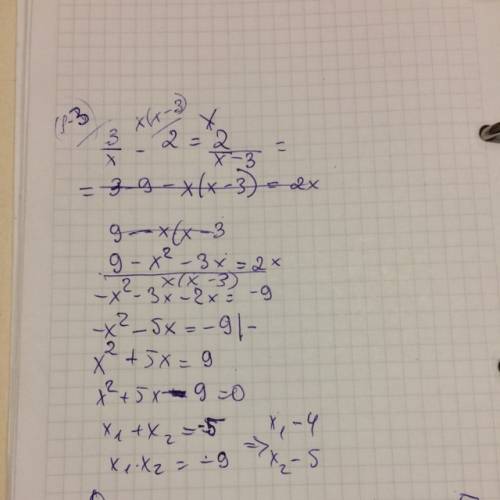 (x-3) x(x-3) x
3/x - 2 = 2/(x-3) =
= 3-9 - x(x-3) = 2x
9 - x(x-3
(9 - x² - 3x)/(x(x-3)) = 2x
-x² - 3x - 2x = -9
-x² - 5x = -9 | -
x² + 5x = 9
x² + 5x - 9 = 0
x₁ + x₂ = -5 ⇒ x₁ - 4
x₁ · x₂ = -9 x₂ - 5